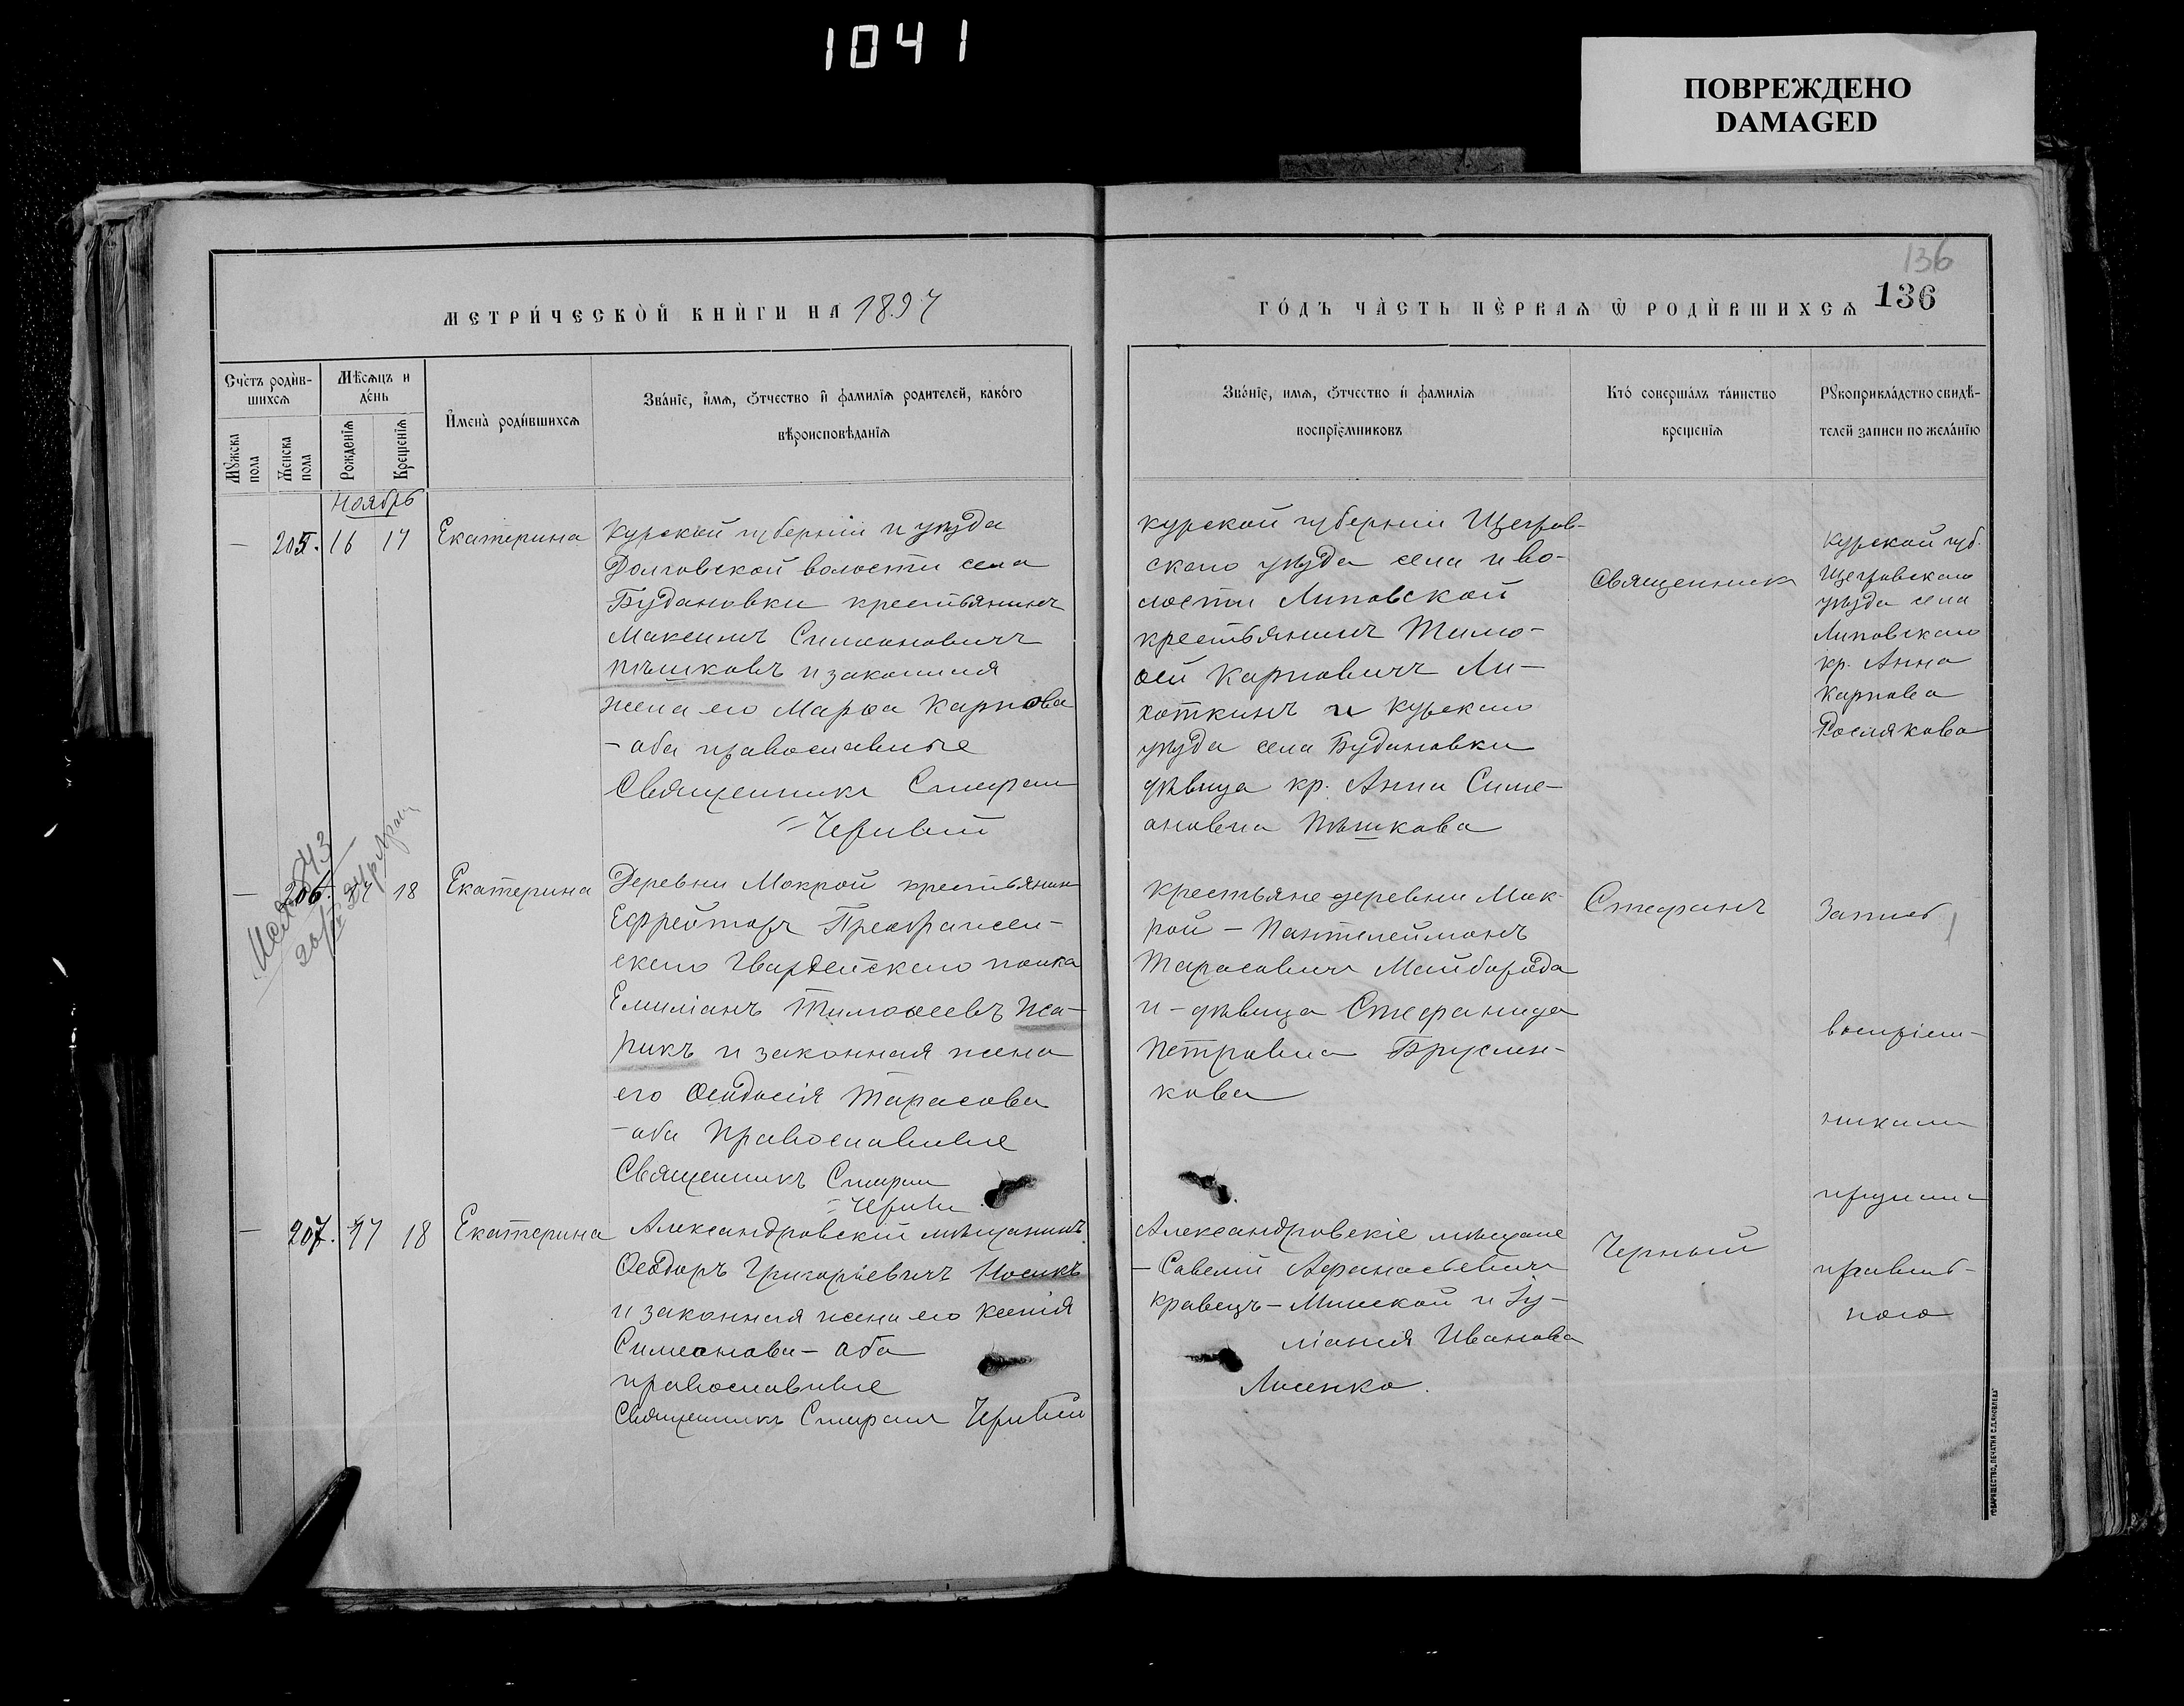 1041
ПОВРЕЖДЕНО
DAMAGED
136
МЕТРИ́ЧЕСКОЙ КНИ́ГИ НА 1897
ГО́ДЪ ЧА́СТЬ ПЕ́РВАѦ Ѡ РОДИ́ВШИХСѦ 136
Сче́тъ роди́в-
шихсѧ
Мѣ́сѧцъ и
де́нь
Мꙋ́жеска
пола
Же́нска
пола
Рожденїѧ
Крещенїѧ
Имена̀ роди́вшихсѧ
Зва́нїе, и́мѧ, ѻ́тчество и҆ фами́лїѧ родителей, како́го
вѣроисповѣ́данїѧ
Зва́нїе, имѧ, ѻ́тчество и҆ фамилїѧ
воспрїе́мниковъ
Кто́ соверша́лъ та́инство
крещенїѧ
Рꙋкоприкла́дство свидѣ́-
телей записи по жела́нїю
Ноябрь
— 205. 16 17 Екатерина
Курской губернiи и уѣзда
Долговской волости села
Будановки крестьянинъ
Максимъ Симеоновичъ
Пѣшковъ и законная
жена его Марѳа Карпова
– оба православные
Священникъ Стефан
Черный
Курской губернiи Щегров-
скаго уѣзда села и во-
лости Липовской
крестьянинъ Тимо-
ѳей Карповичъ Ли-
хоткинъ и Курскаго
уѣзда села Будановки
дѣвица кр. Анна Симе-
оновна Пѣшкова
Священникъ
Курской губ.
Щегровскаго
уѣзда села
Липовскаго
кр. Анна
Карпова
Рослякова
— 206. 17 18 Екатерина
Деревни Мокрой крестьянин
Ефрейторъ Преображен-
скаго Гвардейскаго полка
Емилiанъ Тимоѳеевъ Жа-
рикъ и законная жена
его Ѳеодосiя Тарасова
– оба православные
Священникъ Стефан
Черный
Крестьяне деревни Мок-
рой – Пантелеймонъ
Тарасовичъ Майборода
и – дѣвица Стефанида
Петровна Бруслен-
кова
Стефанъ
Запись
воспрiем-
никами
– 207. 17 18 Екатерина
Александровскiй мѣщанинъ
Ѳеодоръ Григорьевичъ Носикъ
и законная жена его Ксенiя
Симеонова – оба
православные
Священникъ Стефанъ Черный
Александровскiе мѣщане
– Савелiй Афанасьевичъ
Кравецъ – Минской и Iу-
лiанiя Иванова
Лисенко.
Черный
ТОВАРИЩЕСТВО „ПЕЧАТНЯ С.П.ЯКОВЛЕВА“